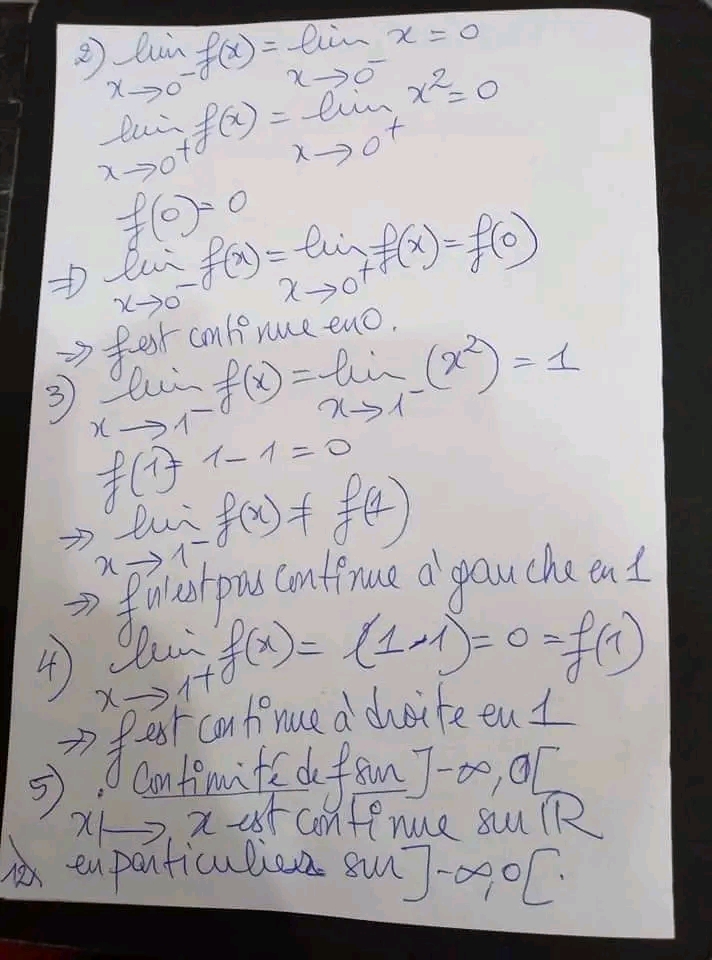 2) lim f(x) = lim x = 0
x→0⁻ x→0⁻
lim f(x) = lim x² = 0
x→0⁺ x→0⁺
f(0) = 0
⇒ lim f(x) = lim f(x) = f(0)
x→0⁻ x→0⁺
⇒ f est continue en 0.
3) lim f(x) = lim (x²) = 1
x→1⁻ x→1⁻
f(1) = 1 - 1 = 0
⇒ lim f(x) ≠ f(1)
x→1⁻
⇒ f n'est pas continue à gauche en 1
4) lim f(x) = (1-1) = 0 = f(1)
x→1⁺
⇒ f est continue à droite en 1
5) . Continuité de f sur ]-∞, 0[
x↦ x est continue sur ℝ
en particulier sur ]-∞, 0[.
12)